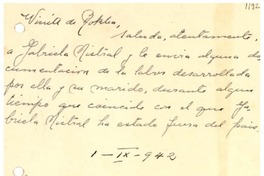 1192
Winétt de Rokha,
saluda, atentamente,
a Gabriela Mistral y le envía alguna do-
cumentación de la labor desarrollada
por ella y su marido, durante algún
tiempo que coincide con el que Ga-
briela Mistral ha estado fuera del país.
1-IX-942